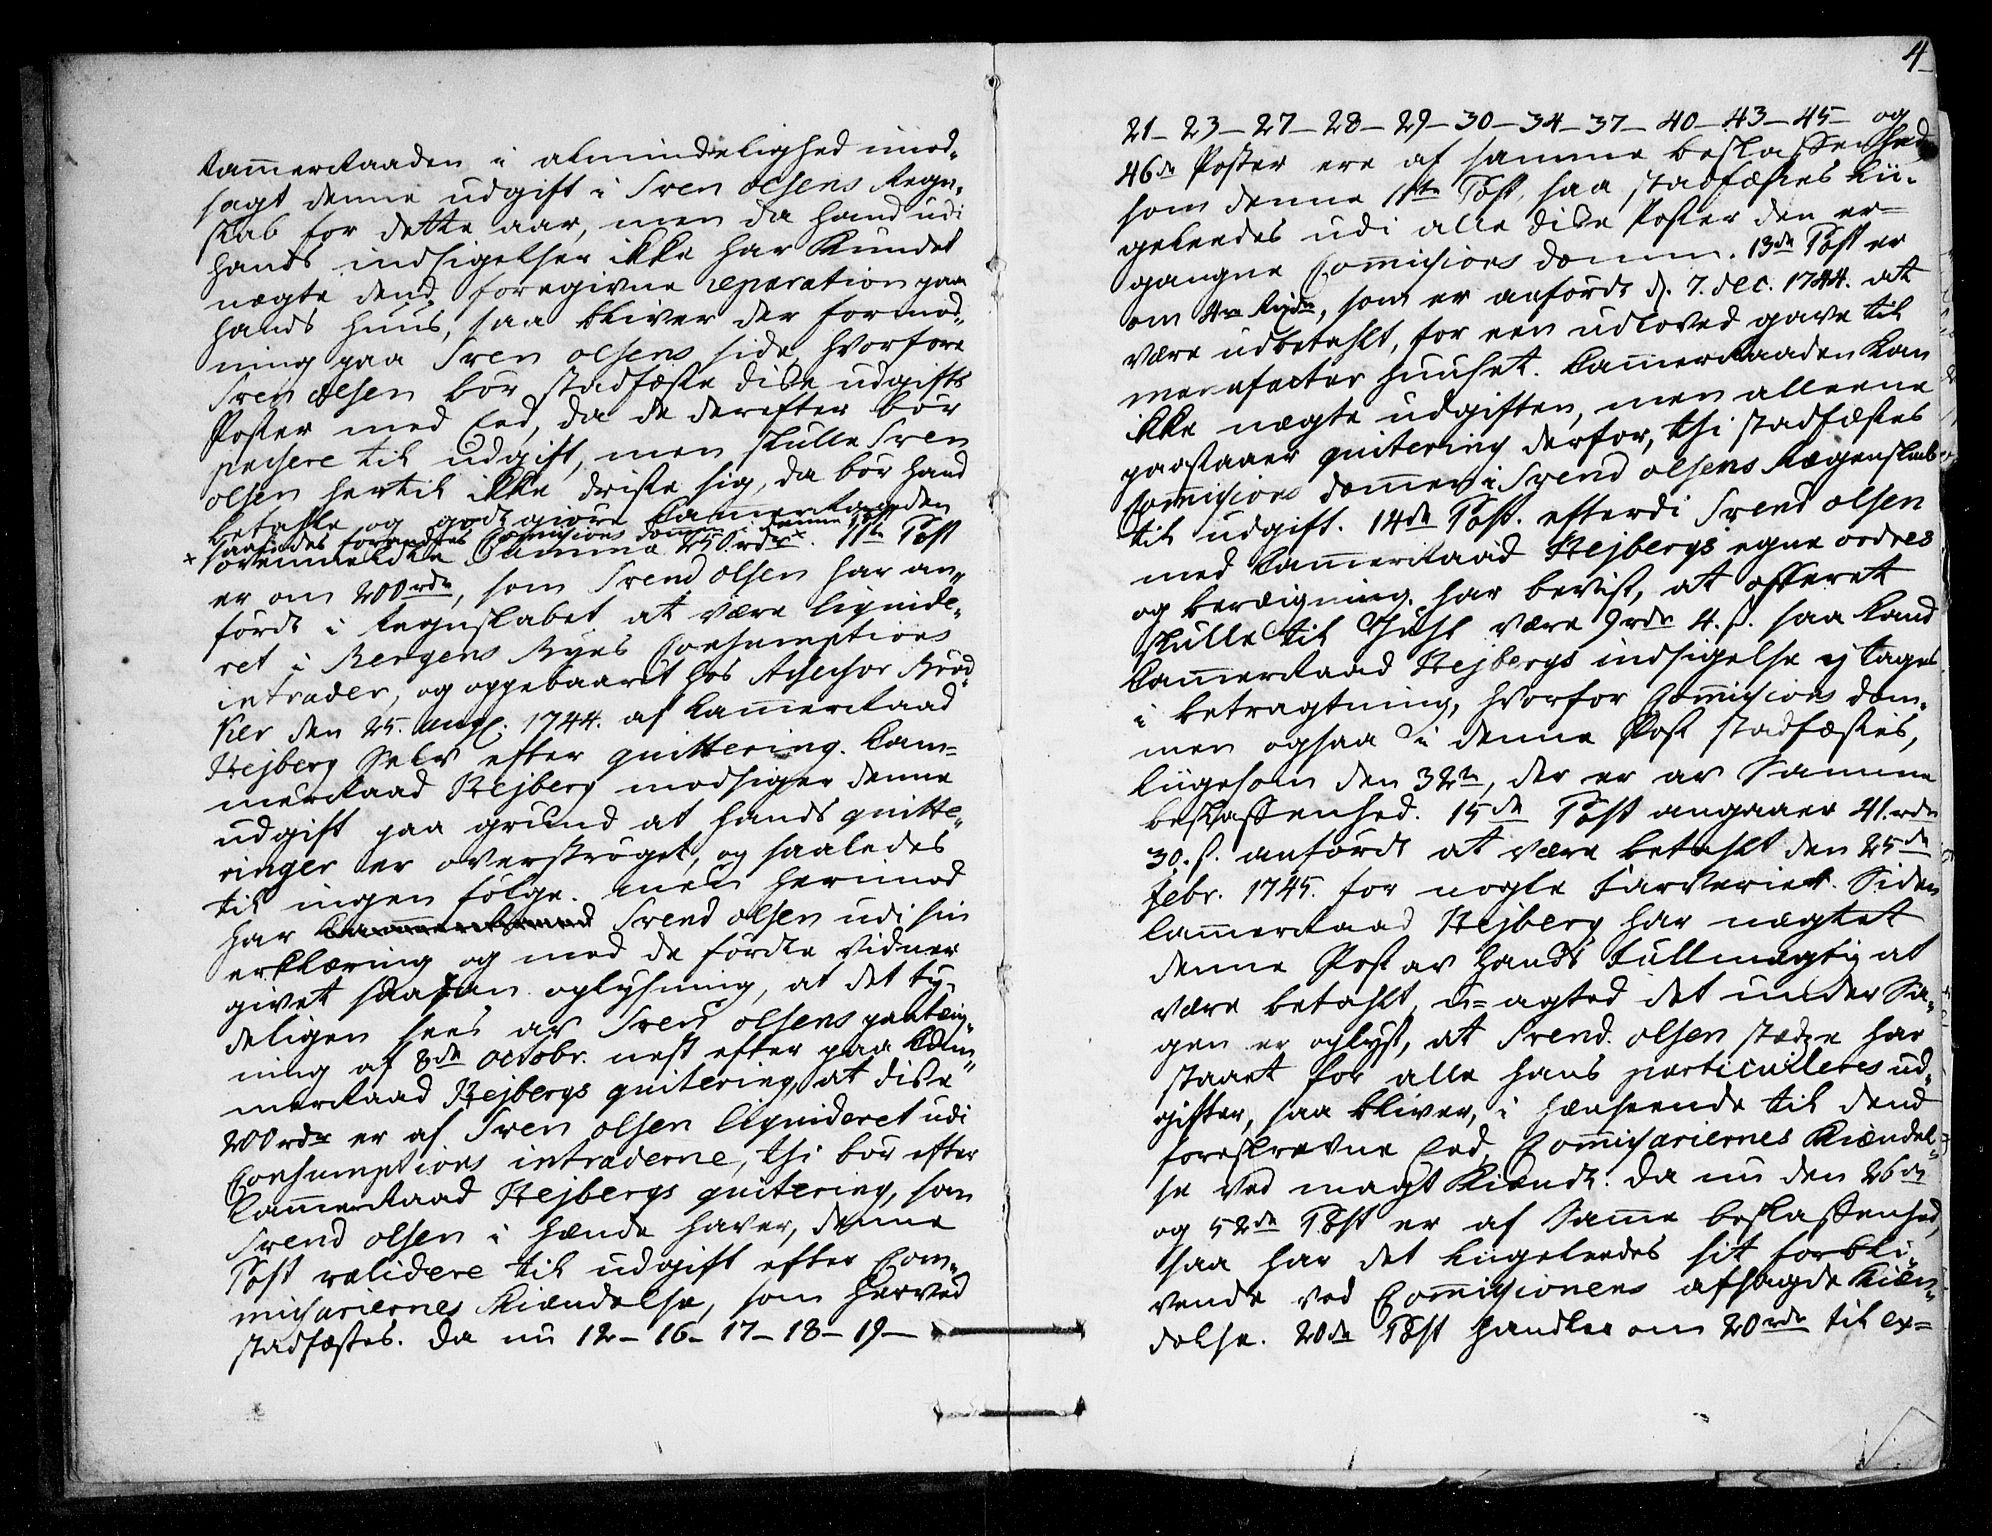 Kam̅erRaaden i almindelighed imod-
sagt denne udgift i Sven olsens Regn-
skab for dette aar, men da hand udi
hands indsigelser ikke har Kundet
nægte dend foregivne reparation paa
hands huus, saa bliver der formod-
ning paa Sven olsens side, hvorfore
Sven olsen bør stadfæste disse udgifts
Poster med Eed, da de derefter bør
passere til udgift, men skulle Sven
olsen hertil ikke driste sig, da bør hand
betahle og godtgiøre Kam̅erRaaden
× saaledes forandres Com̅issions dom̅en i denne Post
ovenmeldte Summa 250 rdr ×. 11te Post
er om 200 rdr, som Svend olsen har an-
førdt i Regnskabet at være liqvide-
ret i Bergens Byes Consumptions
intrader, og oppebaaret hos Assessor Brød-
Ker den 25. aug. 1744. af Kam̅erRaad
Hejberg Selv efter qvittering. Kam-
merRaad Hejberg modsiger denne
udgift paa grund at hands qvitte-
ringer er overstrøget, og saaledes
til ingen følge. men herimod
har Svend olsen udi sin
erklæring og med de førdte vidner
givet saadan oplysning, at det ty-
deligen sees af Sven olsens paateig-
ning af 8de octobr. nest efter paa Kam-
merRaad Hejbergs qvitering, at disse
200 rdr er af Sven olsen liqvideret udi
Consumptions intraderne, thi bør efter
Kam̅erRaad Hejbergs qvitering, som
Svend olsen i hænde haver, denne
Post validere til udgift efter Com-
missariernes Kiændelse, som herved
stadfæstes. Da nu 12 – 16 – 17 – 18 – 19 –
4
21 – 23 – 27 – 28 – 29 – 30 – 34 – 37 – 40 – 43 – 45 – og
46de Poster ere af samme beskaffenhed
som denne 11te Post, saa stadfæstes lii-
geleedes udi alle disse Poster den er-
gangne Com̅issions domm. 13de Post er
om 4re Rixdr, som er anfördt d. 7. dec. 1744. at
være udbetahlt, for een udloved gave til
manufactur huuset. Kam̅erRaaden kan
ikke nægte udgiften, men alleene
paastaaer qvitering derfor, thi stadfæstes
Com̅issions dom̅en i Svend olsens Regenskab
til udgift. 14de Post. efterdi Svend olsen
med Kam̅erRaad Hejbergs egne ordres
og beregning har bevist, at offeret
skulle til Juhl være 9 rdr 4. s. saa kand
Kam̅erRaad Hejbergs indsigelse ej tages
i betragtning, hvorfor Com̅issions dom-
men ogsaa i denne Post stadfæstes,
liigesom den 32te, der er av Samme
beskaffenhed. 15de Post angaaer 41. rdr
30. s. anfördt at være betahlt den 25de
febr. 1745. for nogle Farverier. Siden
Kam̅erRaad Hejberg har nægtet
denne Post av hands Fullmægtig at
være betahlt, u-agted det under Sa-
gen er oplyst, at Svend olsen stædze har
staaet for alle hans particulleres ud-
gifter, saa bliver, i hænseende til dend
foreskrevne Eed, Com̅issariernes Kiændel-
se ved magt Kiændt. Da nu den 26de
og 52de Post er af Sam̅e beskaffenhed,
saa har det liigeleedes sit forbli-
vende ved Com̅issionens afsagde Kiæn-
delse. 20de Post handler om 20 rdr til ex-